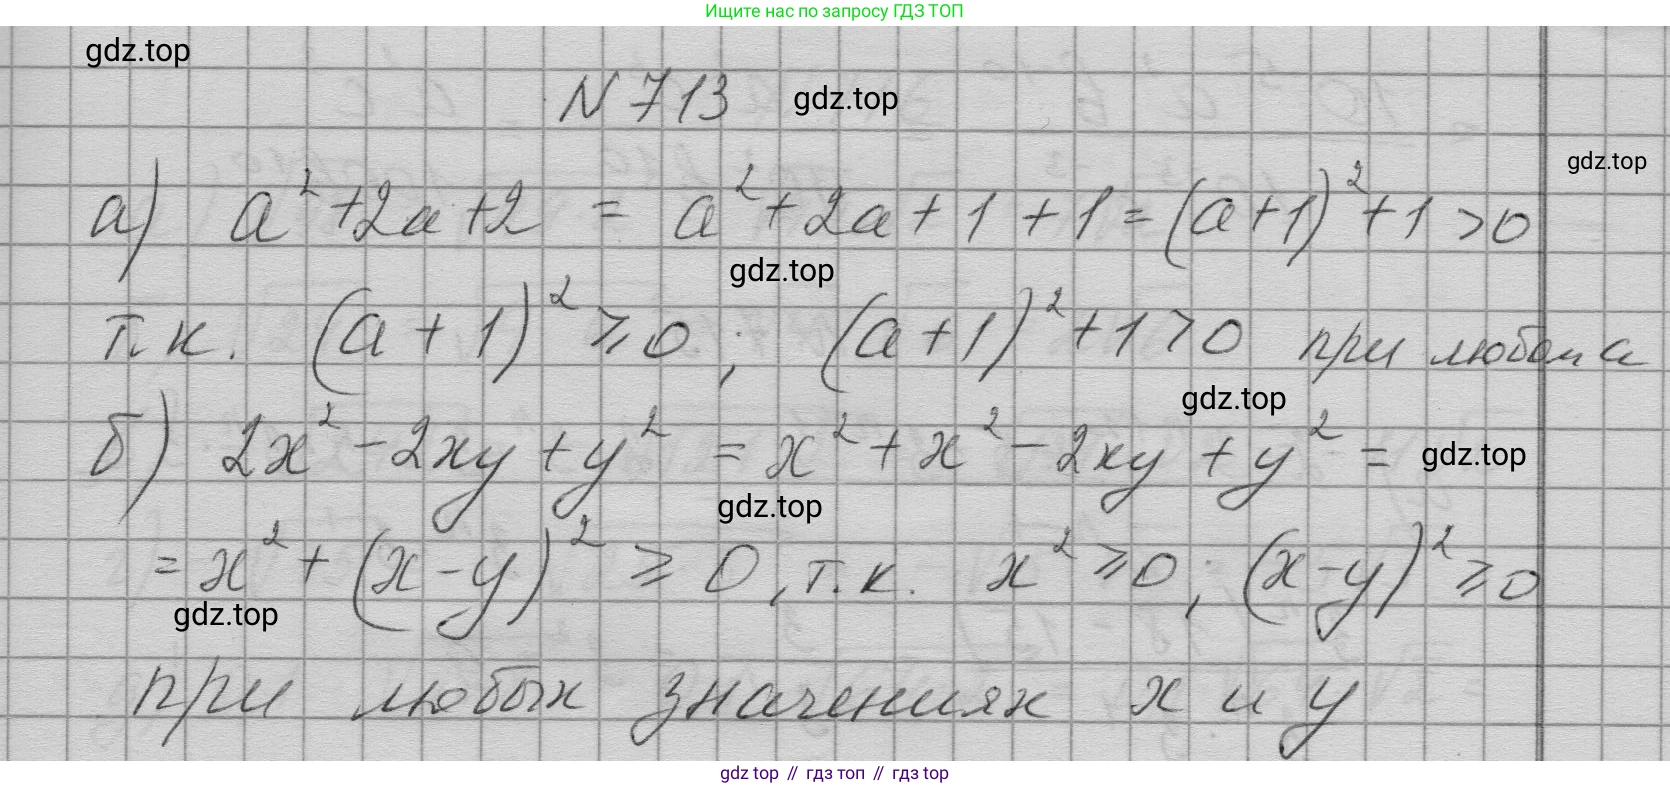 Ищите нас по запросу ГДЗ ТОП
gdz.top
N 713 gdz.top
gdz.top
а) a² + 2a + 2 = a² + 2a + 1 + 1 = (a + 1)² + 1 > 0
gdz.top
т.к. (a + 1)² ⩾ 0; (a + 1)² + 1 > 0 при любом a
gdz.top
б) 2x² - 2xy + y² = x² + x² - 2xy + y² = gdz.top
gdz.top
= x² + (x - y)² ⩾ 0, т.к. x² ⩾ 0; (x - y)² ⩾ 0
gdz.top
при любых значениях x и y
gdz top // гдз топ // гдз top